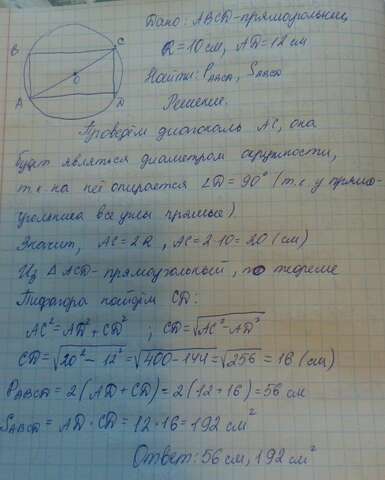 Дано: ABCD-прямоугольник,
R=10см, AD=12см
Найти: P_ABCD, S_ABCD
Решение.
B
C
O
A
D
Проведём диагональ AC, она
будет являться диаметром окружности,
т.к на неё опирается ∠D=90° (т.к. у прямо-
угольника все углы прямые)
Значит, AC=2R, AC=2·10=20(см)
Из ΔACD-прямоугольный, по теореме
Пифагора найдём CD:
AC²=AD²+CD² ; CD=√(AC²-AD²)
CD=√(20²-12²)=√(400-144)=√256=16(см)
P_ABCD=2(AD+CD)=2(12+16)=56см
S_ABCD=AD·CD=12·16=192см²
Ответ: 56см, 192см²